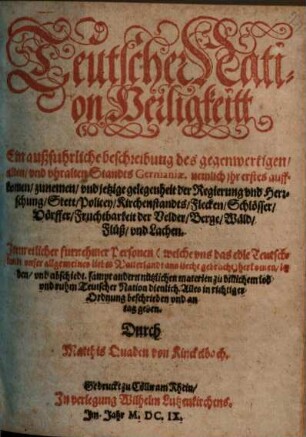 Teutscher Nati-
on Herligkeitt
Ein außführliche beschreibung des gegenwertigen/
alten/ und uhralten Standts Germaniæ, nemlich ihr erstes auff-
komen/ zunemen/ und jetzige gelegenheit der Regierung und Her-
schung/ Stett/ Policey/ Kirchenstandts/ Flecken/ Schlösser/
Dörffer/ Fruchtbarkeit der Velder/ Berge/ Wäld/
Flüß/ und Lachen.
fürnehmer Personen (welche uns das edle Teutsch-
unser allgemeines liebes Vatterlandt
und abschiedt. sampt andern nützlichen materien zu billichem lob
und ruhm Teutscher Nation dienlich. Alles in richtiger
Ordnung beschrieben und an
tag geben.
Durch
Matthis Quaden von Kinckelbach.
Gedruckt zu Cölln am Rhein/
In verlegung Wilhelm Lutzenkirchens.
Im Jahr M. DC IX.